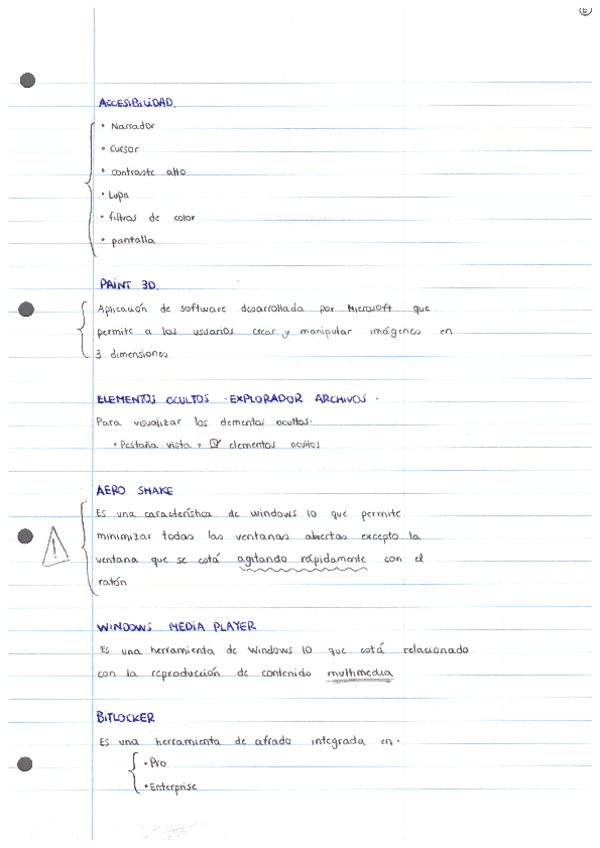 ACCESIBILIDAD.
• Narrador
• Cursor
• contraste alto
• Lupa
• filtros de color
• pantalla
PAINT 3D.
Aplicación de software desarrollada por Microsoft que
permite a los usuarios crear y manipular imágenes en
3 dimensiones
ELEMENTOS OCULTOS · EXPLORADOR ARCHIVOS ·
Para visualizar los elementos ocultos.
• Pestaña vista > ☑ elementos ocultos
AERO SHAKE
Es una característica de windows 10 que permite
minimizar todas las ventanas abiertas excepto la
ventana que se está agitando rápidamente con el
ratón
WINDOWS MEDIA PLAYER
Es una herramienta de Windows 10 que está relacionado
con la reproducción de contenido multimedia
BITLOCKER
Es una herramienta de cifrado integrada en.
• Pro
• Enterprise